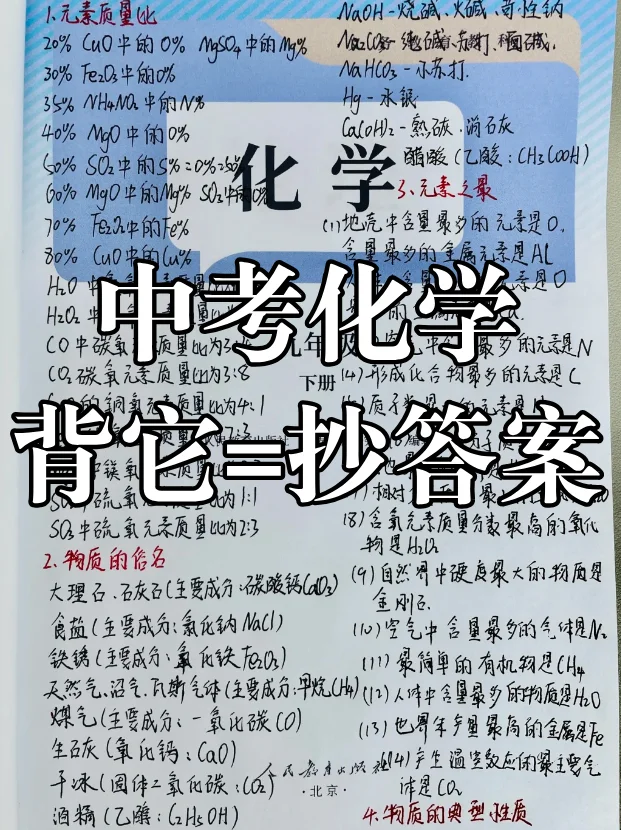 1.元素质量比
20% CuO中的O% MgSO4中的Mg%
30% Fe2O3中的O%
35% NH4NO3中的N%
40% MgO中的O%
50% SO2中的S%=O%=50%
60% MgO中的Mg% SO3中的O%
70% Fe2O3中的Fe%
80% CuO中的Cu%
H2O中
H2O2中
CO中碳氧元素质量比为3:4
CO2碳氧元素质量比为3:8
铜氧元素质量比为4:1
镁氧
硫氧元素质量比为1:1
SO3中硫氧元素质量比为2:3
2.物质的俗名
大理石、石灰石(主要成分:碳酸钙CaCO3)
食盐(主要成分:氯化钠NaCl)
铁锈(主要成分:氧化铁Fe2O3)
天然气、沼气、瓦斯气体(主要成分:甲烷CH4)
煤气(主要成分:一氧化碳CO)
生石灰(氧化钙:CaO)
干冰(固体二氧化碳:CO2)
酒精(乙醇:C2H5OH)
NaOH-烧碱、火碱、苛性钠
Na2CO3-纯碱、苏打、面碱.
NaHCO3-小苏打.
Hg-水银
Ca(OH)2-熟石灰.消石灰
醋酸(乙酸:CH3COOH)
3.元素之最
(1)地壳中含量最多的元素是O.
含量最多的金属元素是Al
元素是O
含量最多的元素是N
(4)形成化合物最多的元素是C
质子
相对
(8)含氧元素质量分数最高的氧化
物是H2O2
(9)自然界中硬度最大的物质是
金刚石.
(10)空气中含量最多的气体是N2
(11)最简单的有机物是CH4
(12)人体中含量最多的物质是H2O
(13)世界年产量最高的金属是Fe
(14)产生温室效应的最主要气
体是CO2
4.物质的典型性质
化学
九年级
下册
人民教育出版社
·北京·
中考化学
背它=抄答案